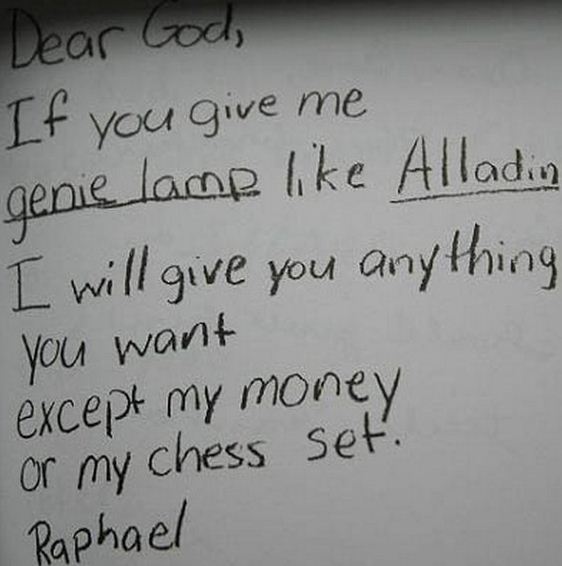 Dear God,
If you give me
genie lamp like Alladin
I will give you anything
you want
except my money
or my chess set.
Raphael